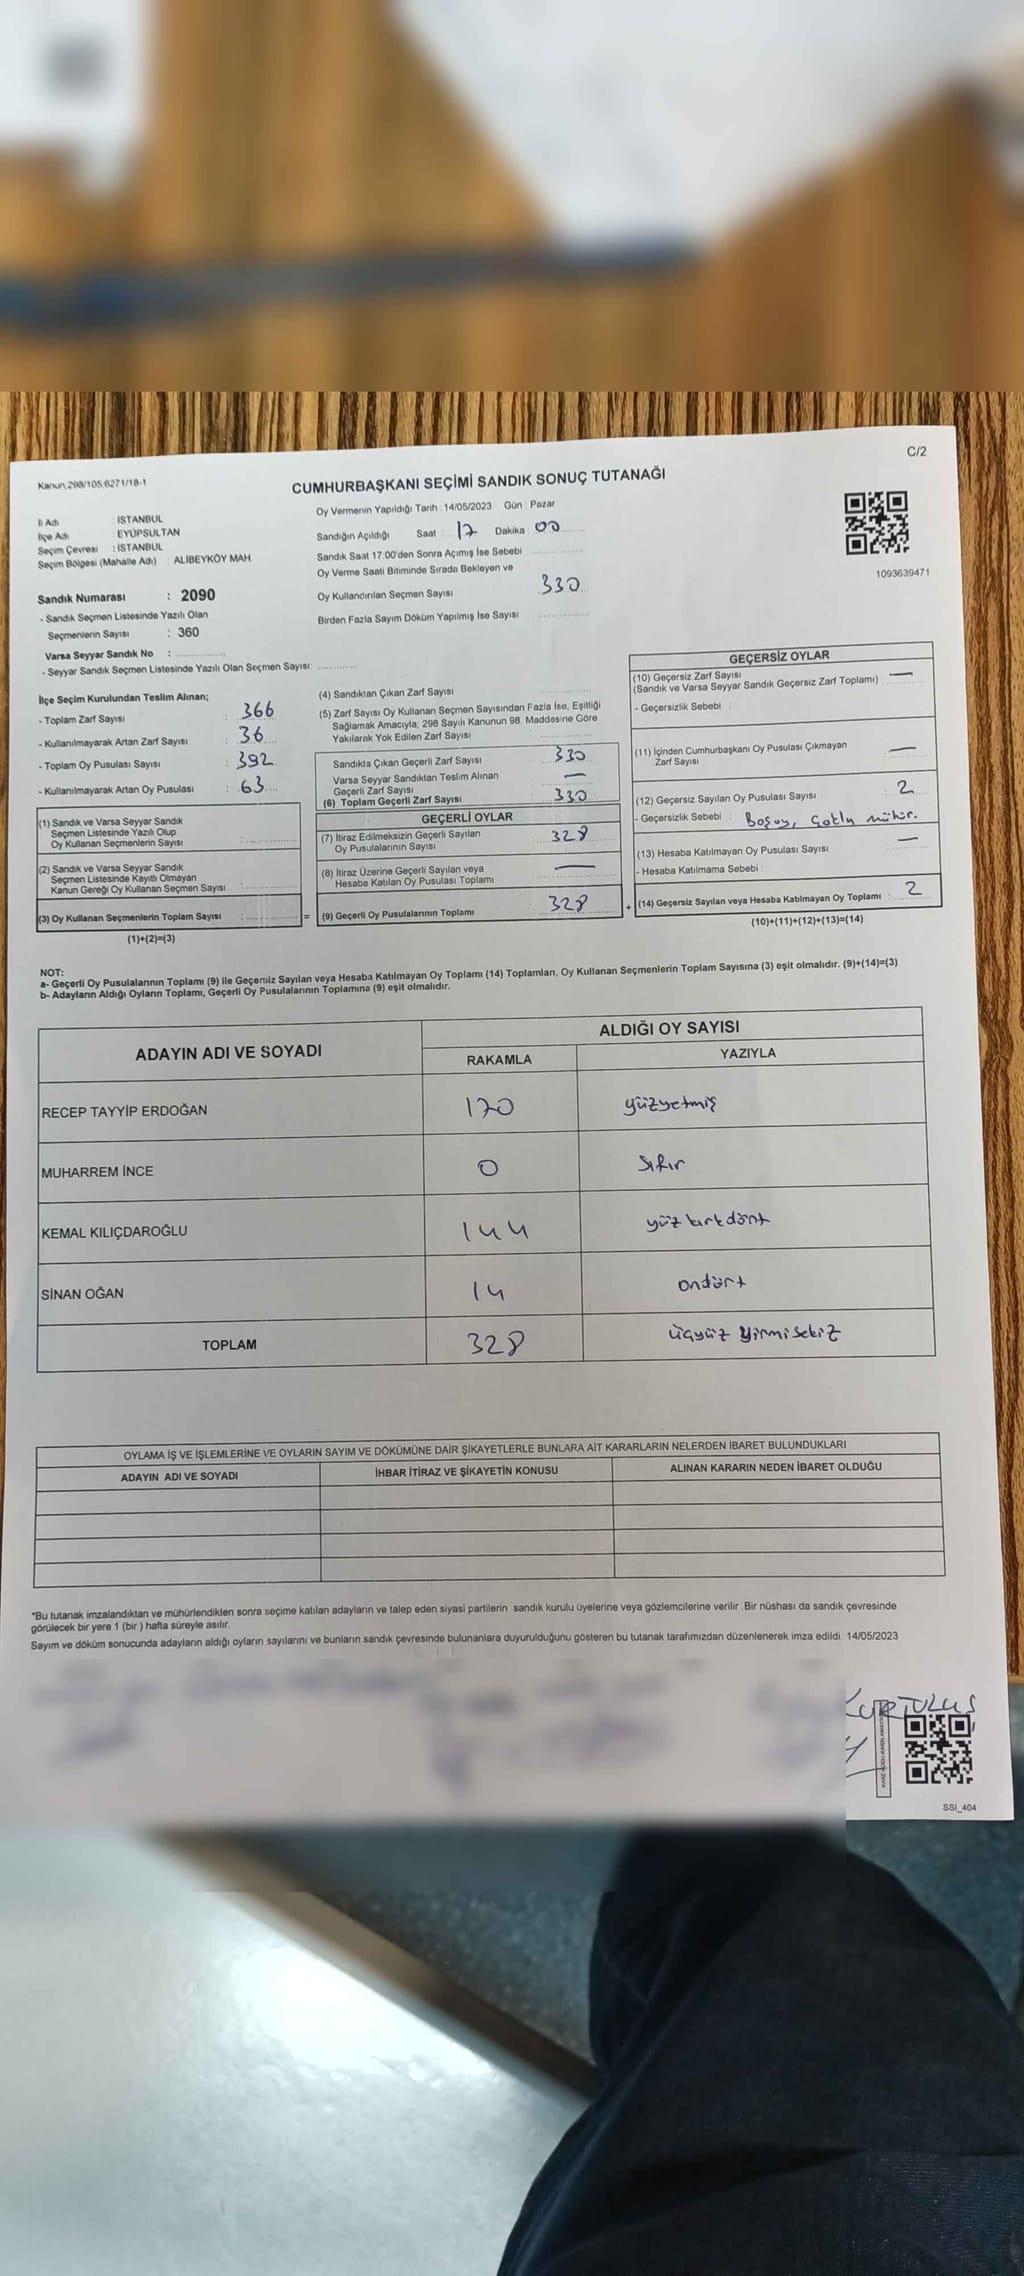 C/2
Kanun,298/105,6271/18-1
CUMHURBAŞKANI SEÇİMİ SANDIK SONUÇ TUTANAĞI
İl Adı : İSTANBUL
İlçe Adı : EYÜPSULTAN
Seçim Çevresi : İSTANBUL
Seçim Bölgesi (Mahalle Adı) : ALİBEYKÖY MAH.
Oy Vermenin Yapıldığı Tarih : 14/05/2023 Gün : Pazar
Sandığın Açıldığı Saat : 17 Dakika : 00
Sandık Saat 17:00'den Sonra Açımış İse Sebebi
Oy Verme Saati Bitiminde Sırada Bekleyen ve
Oy Kullandırılan Seçmen Sayısı 330
Birden Fazla Sayım Döküm Yapılmış İse Sayısı
1093639471
Sandık Numarası : 2090
- Sandık Seçmen Listesinde Yazılı Olan
Seçmenlerin Sayısı : 360
Varsa Seyyar Sandık No :
- Seyyar Sandık Seçmen Listesinde Yazılı Olan Seçmen Sayısı:
İlçe Seçim Kurulundan Teslim Alınan;
- Toplam Zarf Sayısı : 366
- Kullanılmayarak Artan Zarf Sayısı : 36
- Toplam Oy Pusulası Sayısı : 392
- Kullanılmayarak Artan Oy Pusulası : 63
(1) Sandık ve Varsa Seyyar Sandık
Seçmen Listesinde Yazılı Olup
Oy Kullanan Seçmenlerin Sayısı :
(2) Sandık ve Varsa Seyyar Sandık
Seçmen Listesinde Kayıtlı Olmayan
Kanun Gereği Oy Kullanan Seçmen Sayısı :
(3) Oy Kullanan Seçmenlerin Toplam Sayısı : =
(1)+(2)=(3)
(4) Sandıktan Çıkan Zarf Sayısı
(5) Zarf Sayısı Oy Kullanan Seçmen Sayısından Fazla İse, Eşitliği
Sağlamak Amacıyla; 298 Sayılı Kanunun 98. Maddesine Göre
Yakılarak Yok Edilen Zarf Sayısı
Sandıkta Çıkan Geçerli Zarf Sayısı 330
Varsa Seyyar Sandıktan Teslim Alınan
Geçerli Zarf Sayısı —
(6) Toplam Geçerli Zarf Sayısı 330
GEÇERLİ OYLAR
(7) İtiraz Edilmeksizin Geçerli Sayılan
Oy Pusulalarının Sayısı 328
(8) İtiraz Üzerine Geçerli Sayılan veya
Hesaba Katılan Oy Pusulası Toplamı —
(9) Geçerli Oy Pusulalarının Toplamı 328 +
GEÇERSİZ OYLAR
(10) Geçersiz Zarf Sayısı
(Sandık ve Varsa Seyyar Sandık Geçersiz Zarf Toplamı) : —
- Geçersizlik Sebebi :
(11) İçinden Cumhurbaşkanı Oy Pusulası Çıkmayan
Zarf Sayısı —
(12) Geçersiz Sayılan Oy Pusulası Sayısı 2
- Geçersizlik Sebebi : Boş oy, çoklu mühür.
(13) Hesaba Katılmayan Oy Pusulası Sayısı —
- Hesaba Katılmama Sebebi :
(14) Geçersiz Sayılan veya Hesaba Katılmayan Oy Toplamı : 2
(10)+(11)+(12)+(13)=(14)
NOT:
a- Geçerli Oy Pusulalarının Toplamı (9) ile Geçersiz Sayılan veya Hesaba Katılmayan Oy Toplamı (14) Toplamları, Oy Kullanan Seçmenlerin Toplam Sayısına (3) eşit olmalıdır. (9)+(14)=(3)
b- Adayların Aldığı Oyların Toplamı, Geçerli Oy Pusulalarının Toplamına (9) eşit olmalıdır.
ADAYIN ADI VE SOYADI ALDIĞI OY SAYISI
RAKAMLA YAZIYLA
RECEP TAYYİP ERDOĞAN 170 yüzyetmiş
MUHARREM İNCE 0 sıfır
KEMAL KILIÇDAROĞLU 144 yüz kırkdört
SİNAN OĞAN 14 ondört
TOPLAM 328 üçyüz yirmisekiz
OYLAMA İŞ VE İŞLEMLERİNE VE OYLARIN SAYIM VE DÖKÜMÜNE DAİR ŞİKAYETLERLE BUNLARA AİT KARARLARIN NELERDEN İBARET BULUNDUKLARI
ADAYIN ADI VE SOYADI İHBAR İTİRAZ VE ŞİKAYETİN KONUSU ALINAN KARARIN NEDEN İBARET OLDUĞU
*Bu tutanak imzalandıktan ve mühürlendikten sonra seçime katılan adayların ve talep eden siyasi partilerin sandık kurulu üyelerine veya gözlemcilerine verilir. Bir nüshası da sandık çevresinde
görülecek bir yere 1 (bir ) hafta süreyle asılır.
Sayım ve döküm sonucunda adayların aldığı oyların sayılarını ve bunların sandık çevresinde bulunanlara duyurulduğunu gösteren bu tutanak tarafımızdan düzenlenerek imza edildi. 14/05/2023
KURTULUŞ
SSI_404